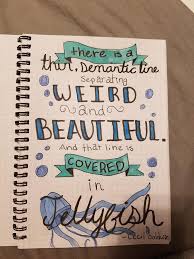 there is a
thin, Semantic line
separating
WEIRD
and
BEAUTIFUL.
And that line is
COVERED
in
Jellyfish
-Cecil Baldwin